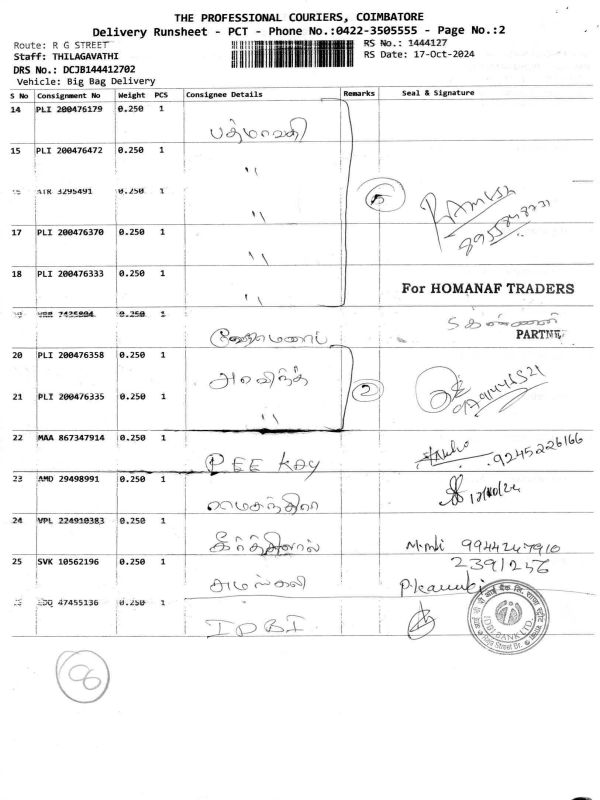 THE PROFESSIONAL COURIERS, COIMBATORE
Delivery Runsheet - PCT - Phone No.:0422-3505555 - Page No.:2
Route: R G STREET
RS No.: 1444127
Staff: THILAGAVATHI
RS Date: 17-Oct-2024
DRS No.: DCJB144412702
Vehicle: Big Bag Delivery
S No Consignment No Weight PCS Consignee Details Remarks Seal & Signature
14 PLI 200476179 0.250 1
பத்மாவதி
15 PLI 200476472 0.250 1
"
ATR 3295491 0.250 1
"
5
17 PLI 200476370 0.250 1
"
18 PLI 200476333 0.250 1
"
For HOMANAF TRADERS
1
PARTNE
20 PLI 200476358 0.250 1
அரவிந்த்
21 PLI 200476335 0.250 1
"
2
22 MAA 867347914 0.250 1
PEE KAY
9245226166
23 AMD 29498991 0.250 1
ராமசந்திரா
24 VPL 224910383 0.250 1
9944247910
25 SVK 10562196 0.250 1
2391256
47455136 0.250 1
IDBI
IDBI BANK LTD.